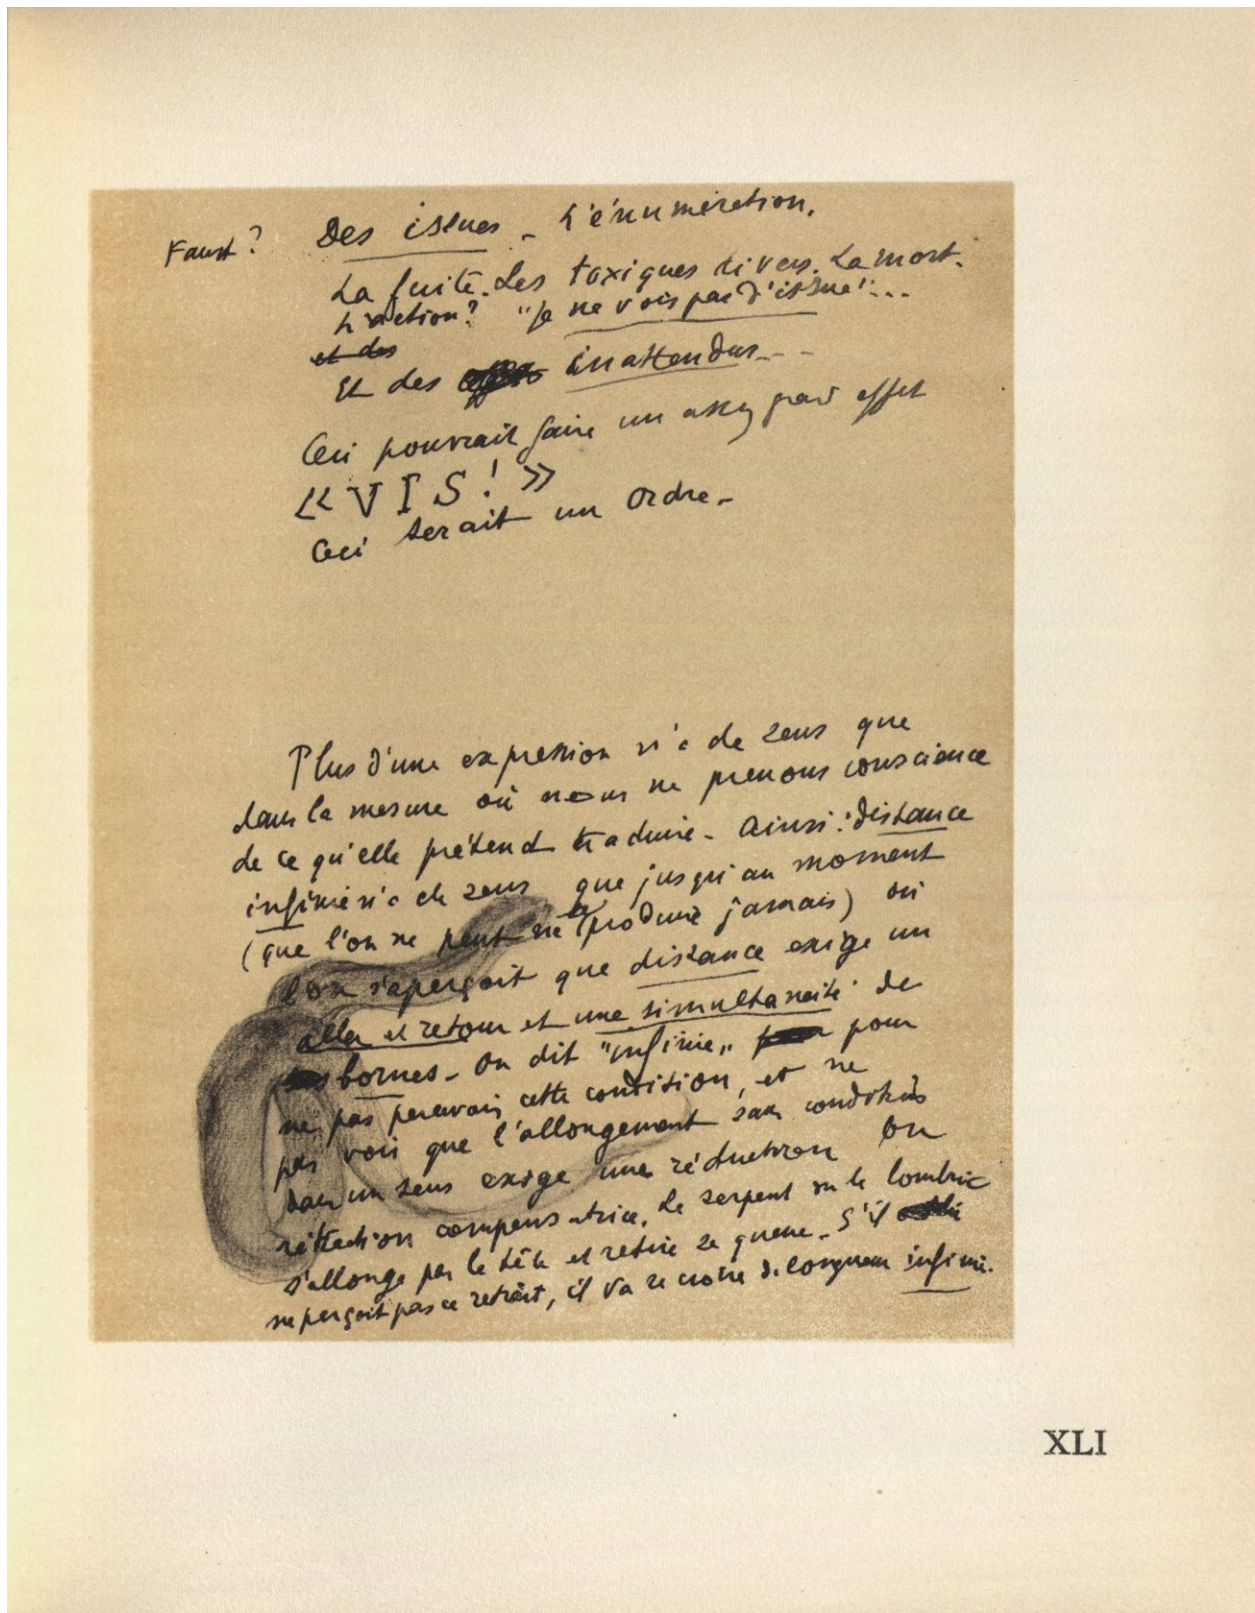 Faust ? Des issues - L'énumération.
La fuite. Les toxiques divers. La mort.
L'action ? "Je ne vois pas d'issue"...
et des
Et des inattendus...
Ceci pourrait faire un assez grand effet
« VIS ! »
Ceci serait un ordre -
Plus d'une expression n'a de sens que
dans la mesure où nous ne prenons conscience
de ce qu'elle prétend traduire - Ainsi : distance
infinie n'a de sens que jusqu'au moment
(que l'on ne peut ne se produire jamais) où
l'on s'aperçoit que distance exige un
aller et retour et une simultanéité de
bornes - On dit "infinie" pour
ne pas percevoir cette condition, et ne
pas voir que l'allongement sans conditions
dans un sens exige une réduction ou
rétraction compensatrice. Le serpent ou le lombric
s'allonge par la tête et retire sa queue - S'il
ne perçoit pas ce retrait, il va se croire de longueur infinie.
XLI